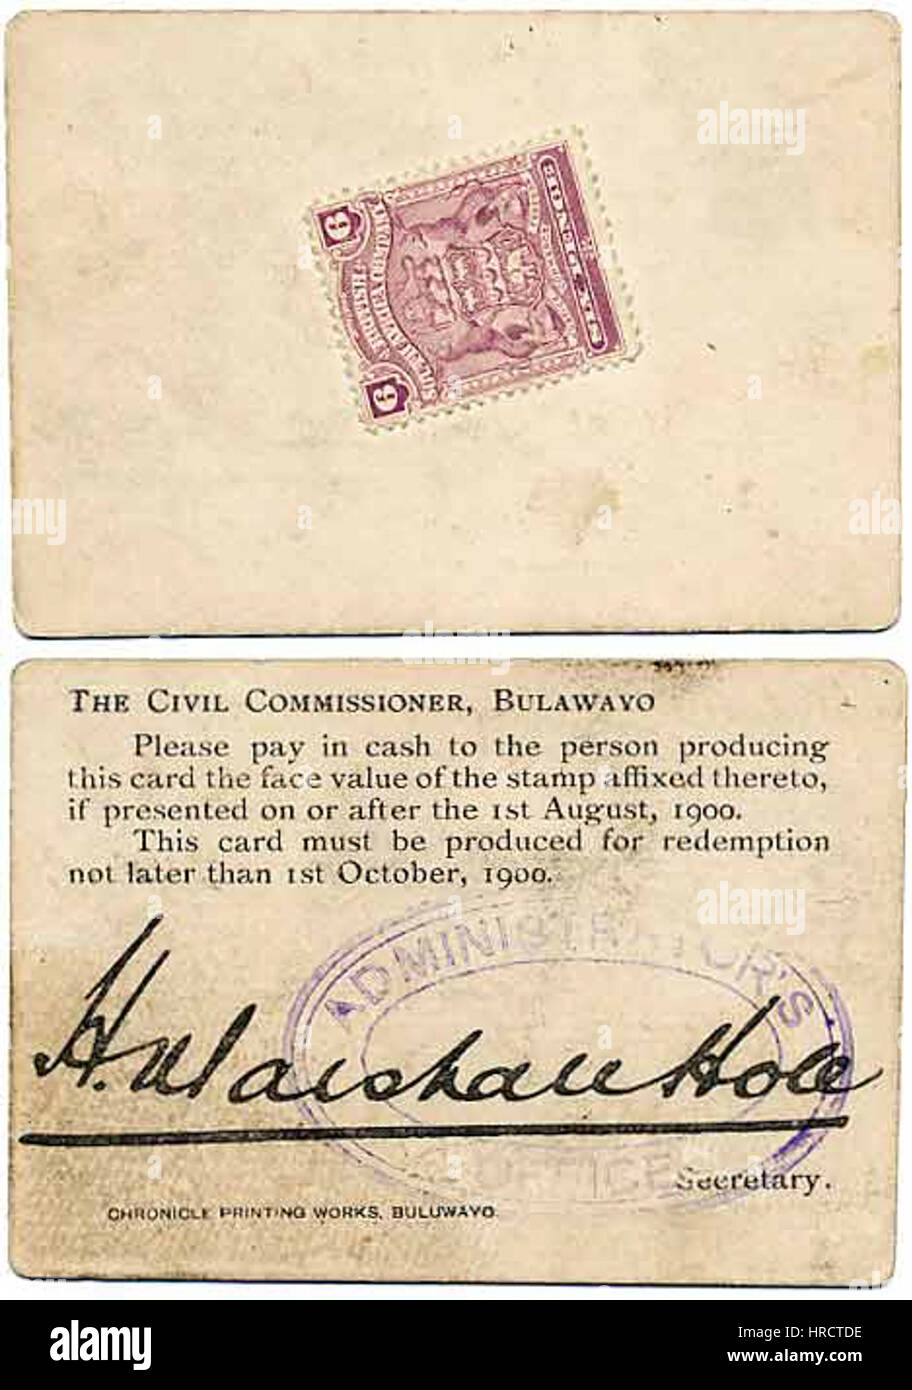 6
6
BRITISH
SOUTH AFRICA COMPANY
SIX PENCE
THE CIVIL COMMISSIONER, BULAWAYO
Please pay in cash to the person producing
this card the face value of the stamp affixed thereto,
if presented on or after the 1st August, 1900.
This card must be produced for redemption
not later than 1st October, 1900.
ADMINISTRATOR'S
OFFICE
H. Marshall Hole
Secretary.
CHRONICLE PRINTING WORKS, BULUWAYO.
a
alamy
alamy stock photo
HRCTDE
www.alamy.com